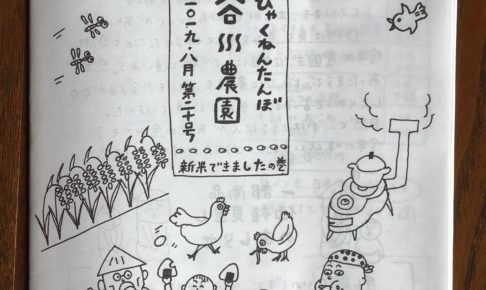 ひゃくねんたんぼ
谷川農園
二〇一九・八月 第二十号
新米できましたの巻